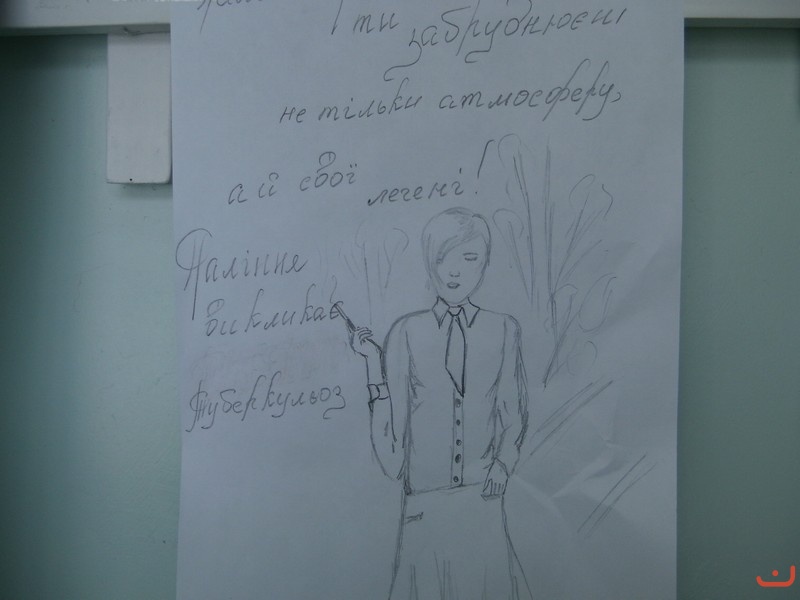 ти забруднюєш
не тільки атмосферу,
а й свої легені!
Паління
викликає
туберкульоз